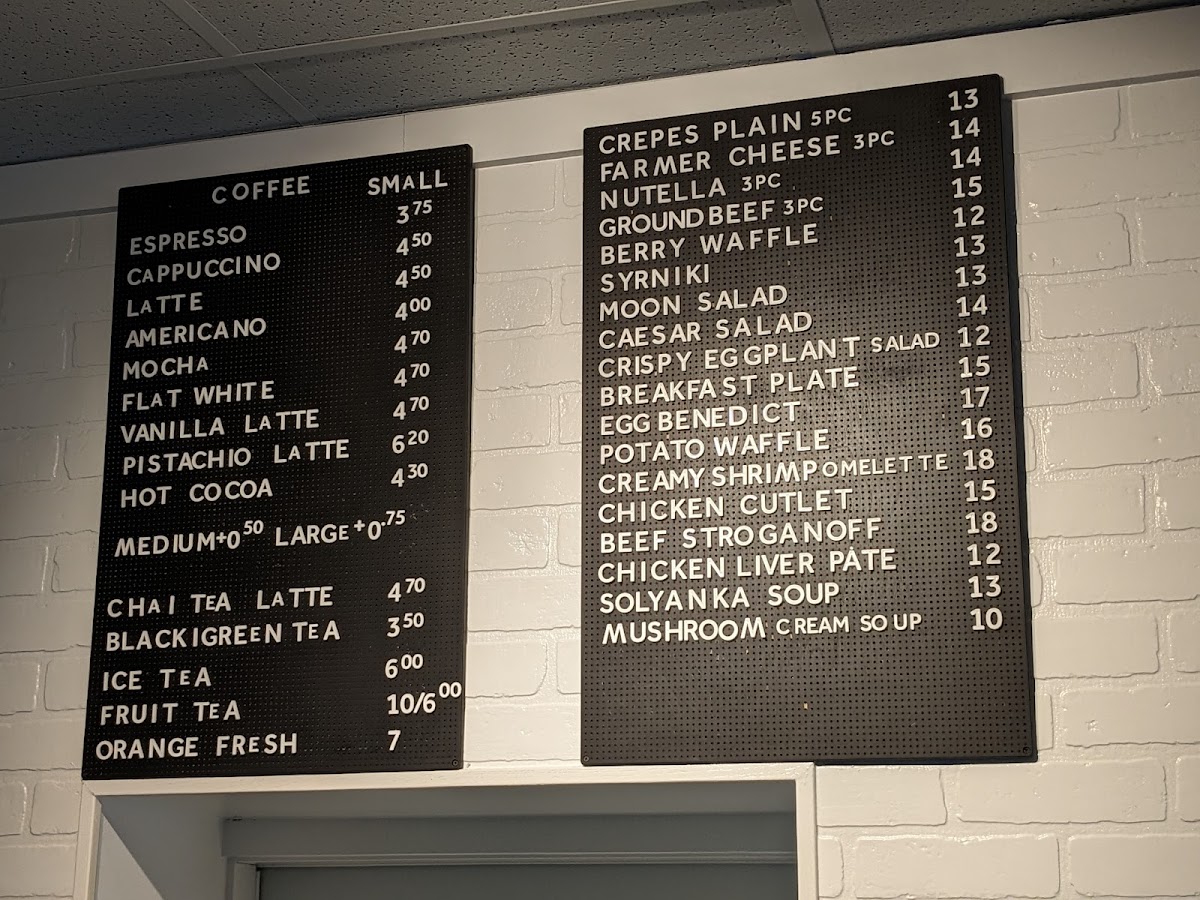 COFFEE SMALL
ESPRESSO 3 75
CAPPUCCINO 4 50
LATTE 4 50
AMERICANO 4 00
MOCHA 4 70
FLAT WHITE 4 70
VANILLA LATTE 4 70
PISTACHIO LATTE 6 20
HOT COCOA 4 30
MEDIUM+0 50 LARGE+0.75
CHAI TEA LATTE 4 70
BLACKIGREEN TEA 3 50
ICE TEA 6 00
FRUIT TEA 10/6 00
ORANGE FRESH 7
CREPES PLAIN 5PC 13
FARMER CHEESE 3PC 14
NUTELLA 3PC 14
GROUND BEEF 3PC 15
BERRY WAFFLE 12
SYRNIKI 13
MOON SALAD 13
CAESAR SALAD 14
CRISPY EGGPLANT SALAD 12
BREAKFAST PLATE 15
EGG BENEDICT 17
POTATO WAFFLE 16
CREAMY SHRIMP OMELETTE 18
CHICKEN CUTLET 15
BEEF STROGANOFF 18
CHICKEN LIVER PATE 12
SOLYANKA SOUP 13
MUSHROOM CREAM SOUP 10